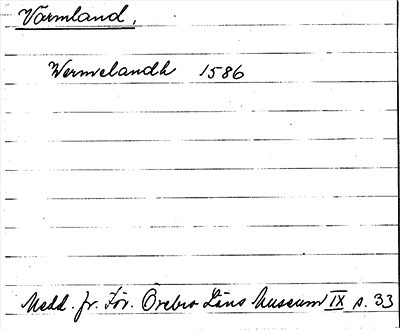 Värmland.
Wermelandh 1586
Medd. fr. För. Örebro Läns Museum IX s. 33